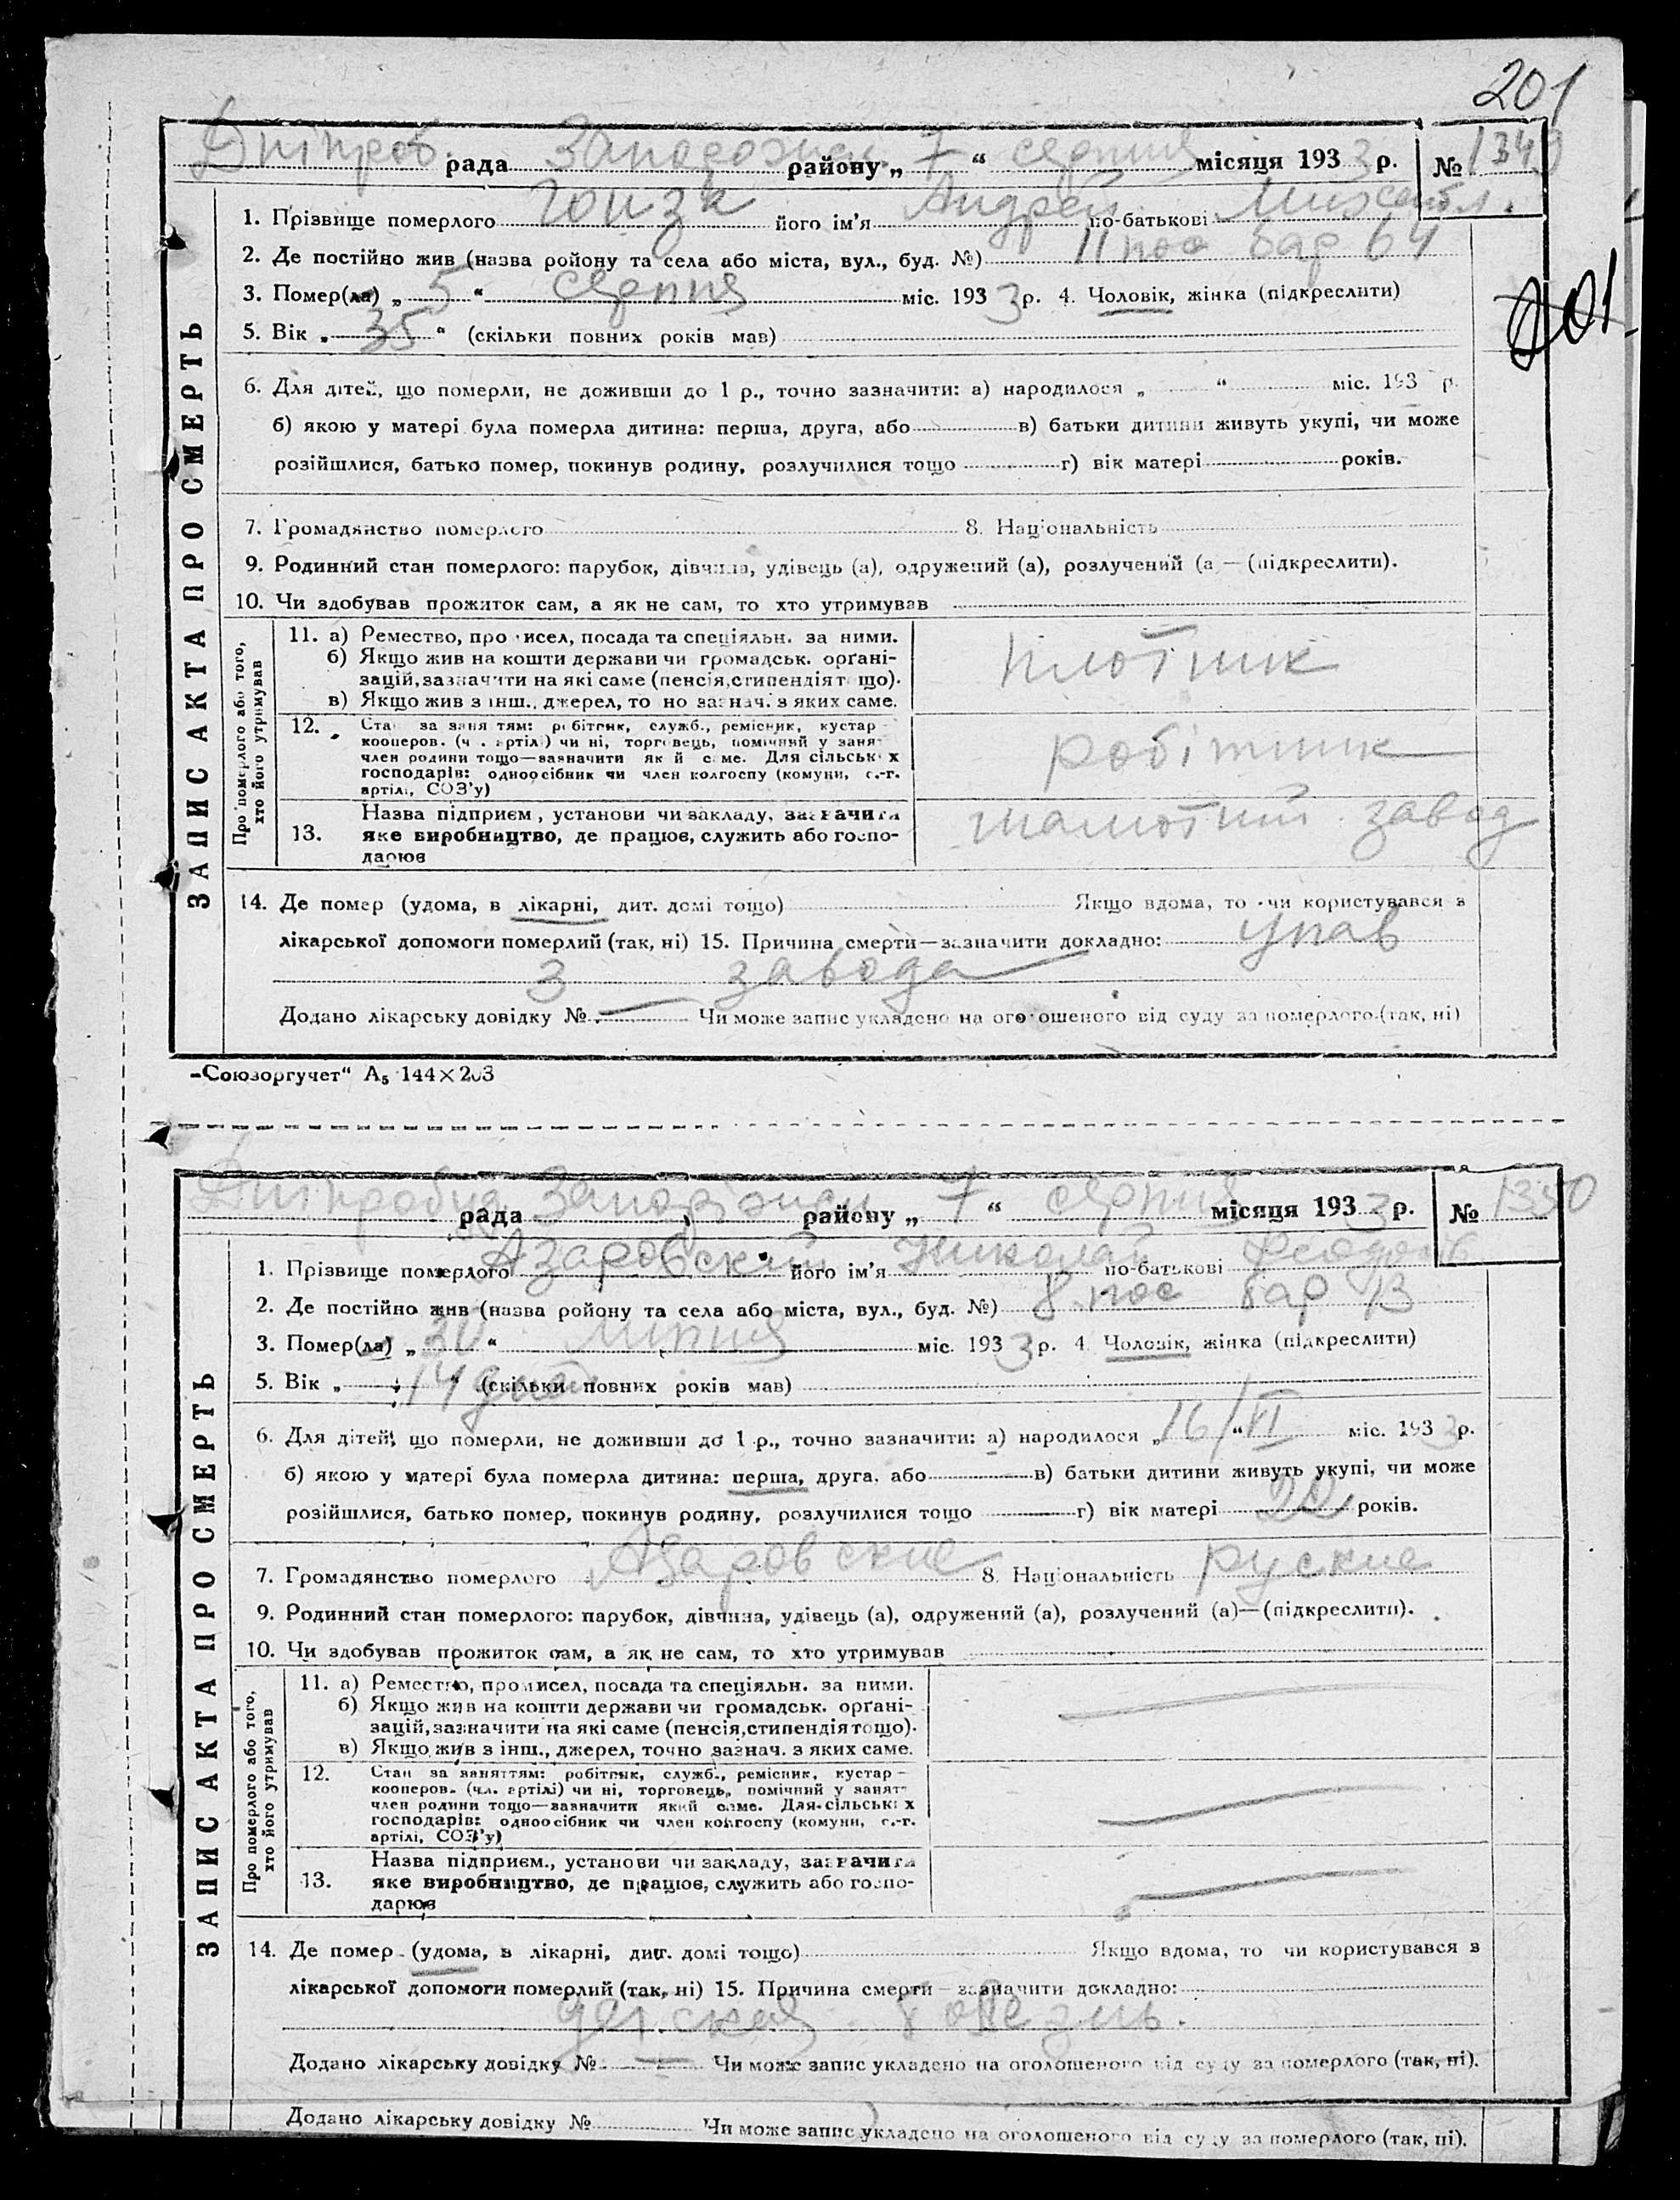 201
рада районy „ 7 “ серпня місяця 1933 р. № 1349
1. Прізвище померлого його ім’я Андрей по-батькові
2. Де постійно жив (назва ройону та села або міста, вул., буд. №) 11 пос бар 64
3. Помер(ла) „ 5 “ серпня міс. 1933 р. 4. Чоловік, жінка (підкреслити)
201
5. Вік „ 35 “ (скільки повних років мав)
6. Для дітей, що померли, не доживши до 1 р., точно зазначити: а) народилося „ “ міс. 193 р.
б) якою у матері була померла дитина: перша, друга, або в) батьки дитини живуть укупі, чи може
розійшлися, батько помер, покинув родину, розлучилися тощо г) вік матері років.
7. Громадянство померлого 8. Національність
9. Родинний стан померлого: парубок, дівчина, удівець (а), одружений (а), розлучений (а — (підкреслити).
10. Чи здобував прожиток сам, а як не сам, то хто утримував
ЗАПИС АКТА ПРО СМЕРТЬ
Про померлого або того, хто його утримував
11. а) Ремество, про исел, посада та спеціяльн. за ними.
б) Якщо жив на кошти держави чи громадськ. орґані-
зацій, зазначити на які саме (пенсія, стипендія т щο).
в) Якщо жив з інш., джерел, то но зазнач. з яких саме.
плотник
12. Ста за заня тям: робітник, служб., ремісник, кустар
кооперов. (ч . артілі) чи ні, торговець, помічний у занят
член родини тощо—зазначити як й саме. Для сільськ х
господарів: одноосібник чи член колгоспу (комуни, с.-г.
артілі, СОЗ’у)
робітник
13. Назва підприєм, установи чи закладу, зазначити
яке виробництво, де працює, служить або госпо-
дарює
шамотний завод
14. Де помер (удома, в лікарні, дит. домі тощо) Якщо вдома, то чи користувався з
лікарської допомоги померлий (так, ні) 15. Причина смерти—зазначити докладно: упав
з завода
Додано лікарську довідку № — Чи може запис укладено на оголошеного від суду за померлого (так, ні)
-Союзоргучет“ А5 144×203
Дніпробуд рада районy „ 7 “ серпня місяця 1933 р. № 1350
1. Прізвище померлого Азаровский його ім’я Николай по-батькові
2. Де постійно жив (назва ройону та села або міста, вул., буд. №) 8 пос бар 13
3. Помер(ла) „ 30 “ липня міс. 1933 р. 4 Чоловік, жінка (підкреслити)
5. Вік „ 14 дней “ (скільки повних років мав)
6. Для дітей, що померли, не доживши до 1 р., точно зазначити: а) народилося „ 16/VI “ міс. 1933 р.
б) якою у матері була померла дитина: перша, друга, або в) батьки дитини живуть укупі, чи може
розійшлися, батько помер, покинув родину, розлучилися тощо г) вік матері 22 років.
7. Громадянство померлого Азаровские 8. Національність руские
9. Родинний стан померлого: парубок, дівчина, удівець (а), одружений (а), розлучений (а)—(підкреслити).
10. Чи здобував прожиток сам, а як не сам, то хто утримував
ЗАПИС АКТА ПРО СМЕРТЬ
Про померлого або того, хто його утримував
11. а) Ремество, промисел, посада та спеціяльн. за ними.
б) Якщо жив на кошти держави чи громадськ. орґані-
зацій, зазначити на які саме (пенсія, стипендія тощо).
в) Якщо жив з інш., джерел, точно зазнач. з яких саме.
12. Стан за заняттям: робітник, служб., ремісник, кустар —
кооперов. (чл. артілі) чи ні, торговець, помічний у занятт
член родини тощо—зазначити який саме. Для сільськ х
господарів: одноосібник чи член колгоспу (комуни, с.-г.
артілі, СОЗ’у)
13. Назва підприєм., установи чи закладу, зазначити
яке виробництво, де працює, служить або госпо-
дарює
14. Де помер (удома, в лікарні, дит. домі тощо) Якщо вдома, то чи користувався з
лікарської допомоги померлий (так, ні) 15. Причина смерти — зазначити докладно:
детская болезнь.
Додано лікарську довідку № — Чи може запис укладено на оголошеного від суду за померлого (так, ні).
Додано лікарську довідку № Чи може запис укладено на оголошеного від суду за померлого (так, ні).